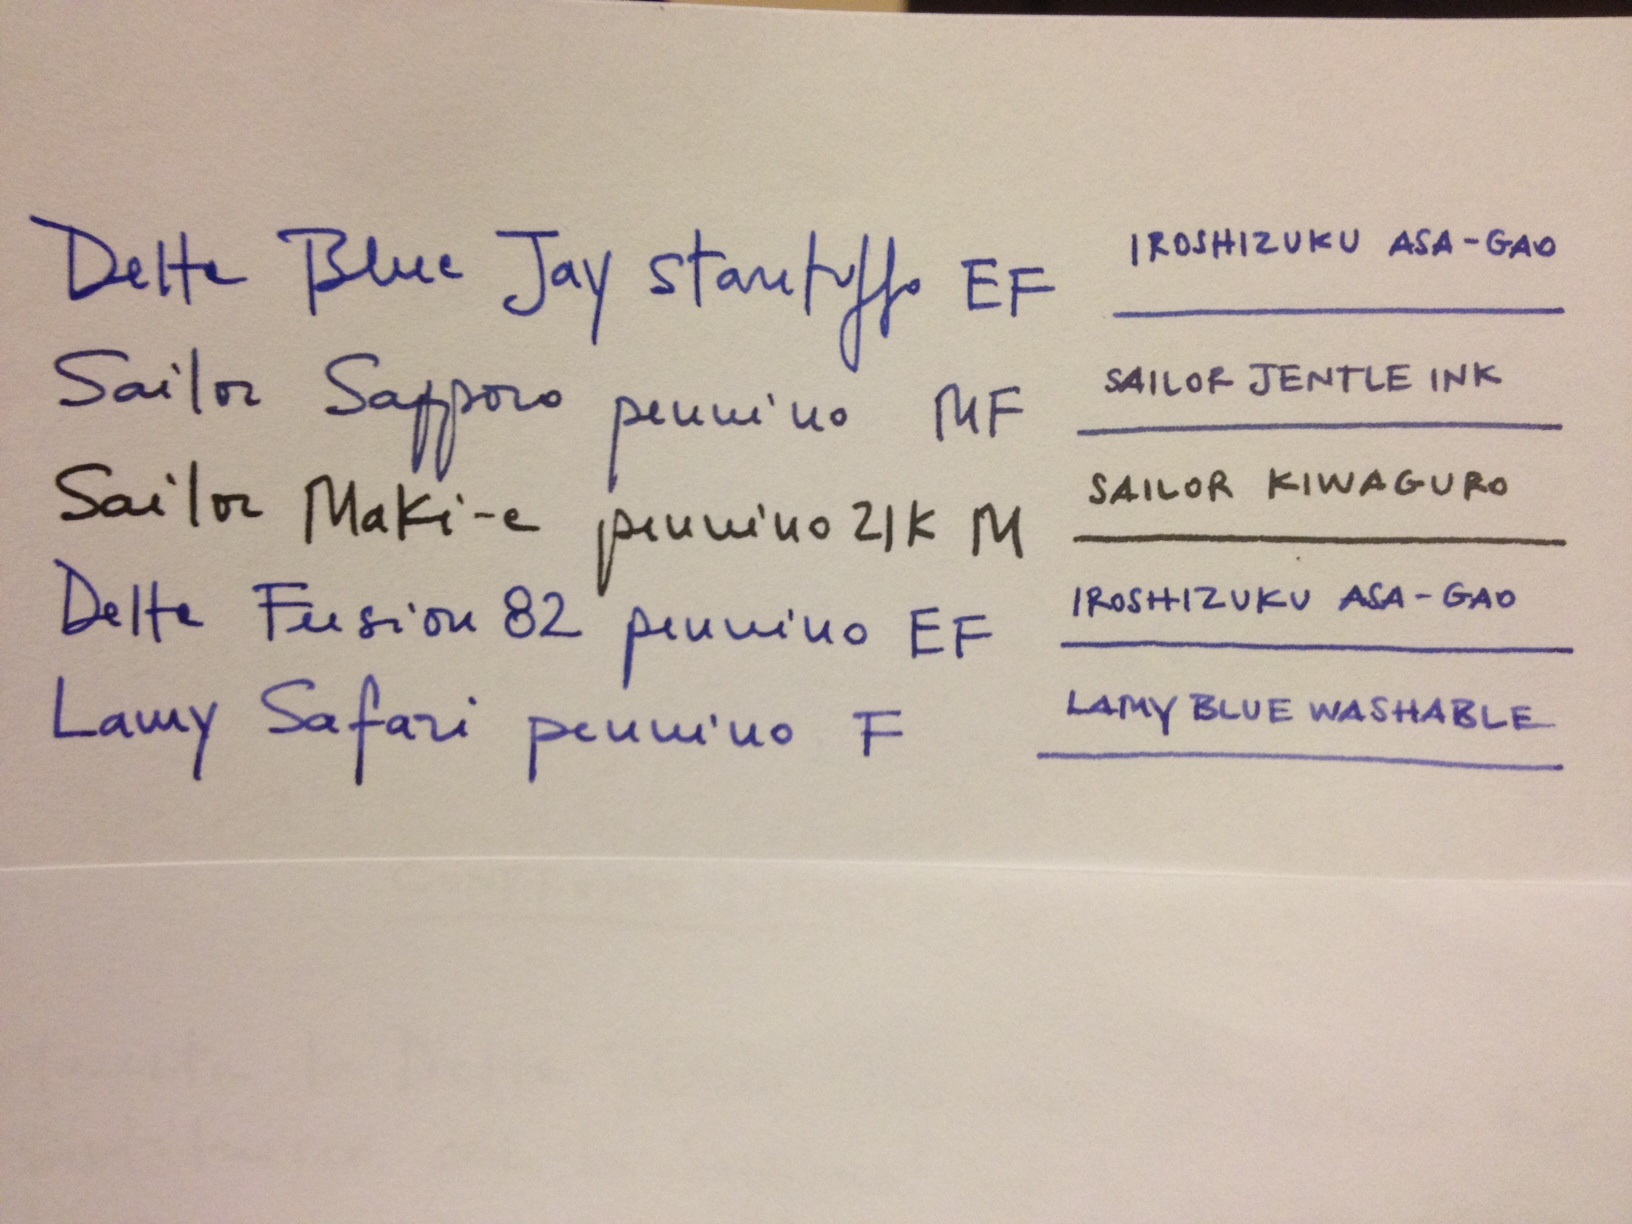 Delta Blue Jay stantuffo EF IROSHIZUKU ASA-GAO
Sailor Sapporo pennino MF SAILOR JENTLE INK
Sailor Maki-e pennino 21K M SAILOR KIWAGURO
Delta Fusion 82 pennino EF IROSHIZUKU ASA-GAO
Lamy Safari pennino F LAMY BLUE WASHABLE